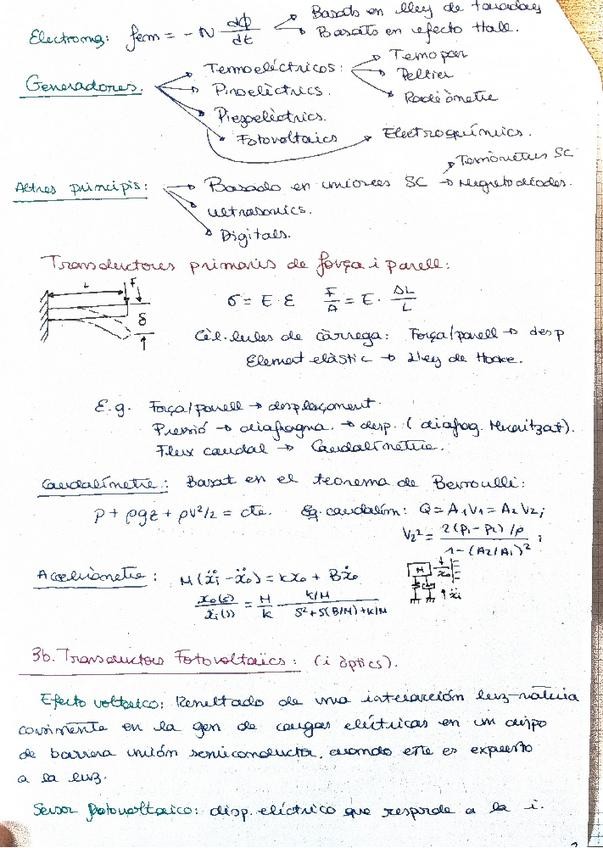 Electromg: fem = -N dΦ/dt → Basats en lley de Faradey
→ Basats en efecto Hall.
Generadores. → Termoeléctricos: → Temopar
→ Peltier
→ Radiòmetre
→ Piroelèctrics.
→ Piezoelèctrics.
→ Fotovoltaics → Electroquímics.
Altres principis: → Basado en uniones SC → Termòmetres SC
→ Magnetodíodes.
→ Ultrasonics.
→ Digitals.
Transductores primaris de força i parell:
L F δ
σ = E · ε F/A = E · ΔL/L
Cèl·lules de càrrega: Força/parell → desp
Element elàstic → Lley de Hooke.
E.g. Força/parell → desplaçament.
Pressió → diafragma. → desp. (diafrag. Micritzat).
Flux caudal → Caudalímetre.
Caudalímetre: Basat en el teorema de Bernoulli:
p + ρgz + ρv²/2 = cte. Eq. caudalím: Q = A₁V₁ = A₂V₂;
V₂² = 2(p₁-p₂)/ρ / 1-(A₂/A₁)² ;
Acceliòmetre: M(ẍi - ẍo) = kxo + Bẋo
xo(s)/ẍi(s) = M/k · k/M / s²+s(B/M)+k/M
M xo ẍi
3b. Transductors Fotovoltaïcs: (i òptics).
Efecto voltaico: Resultado de una interacción luz-materia
consistente en la gen de cargas eléctricas en un dispo
de barrera unión semiconductor, cuando este es expuesto
a la luz.
Sensor fotovoltaico: disp. eléctrico que responde a la i.